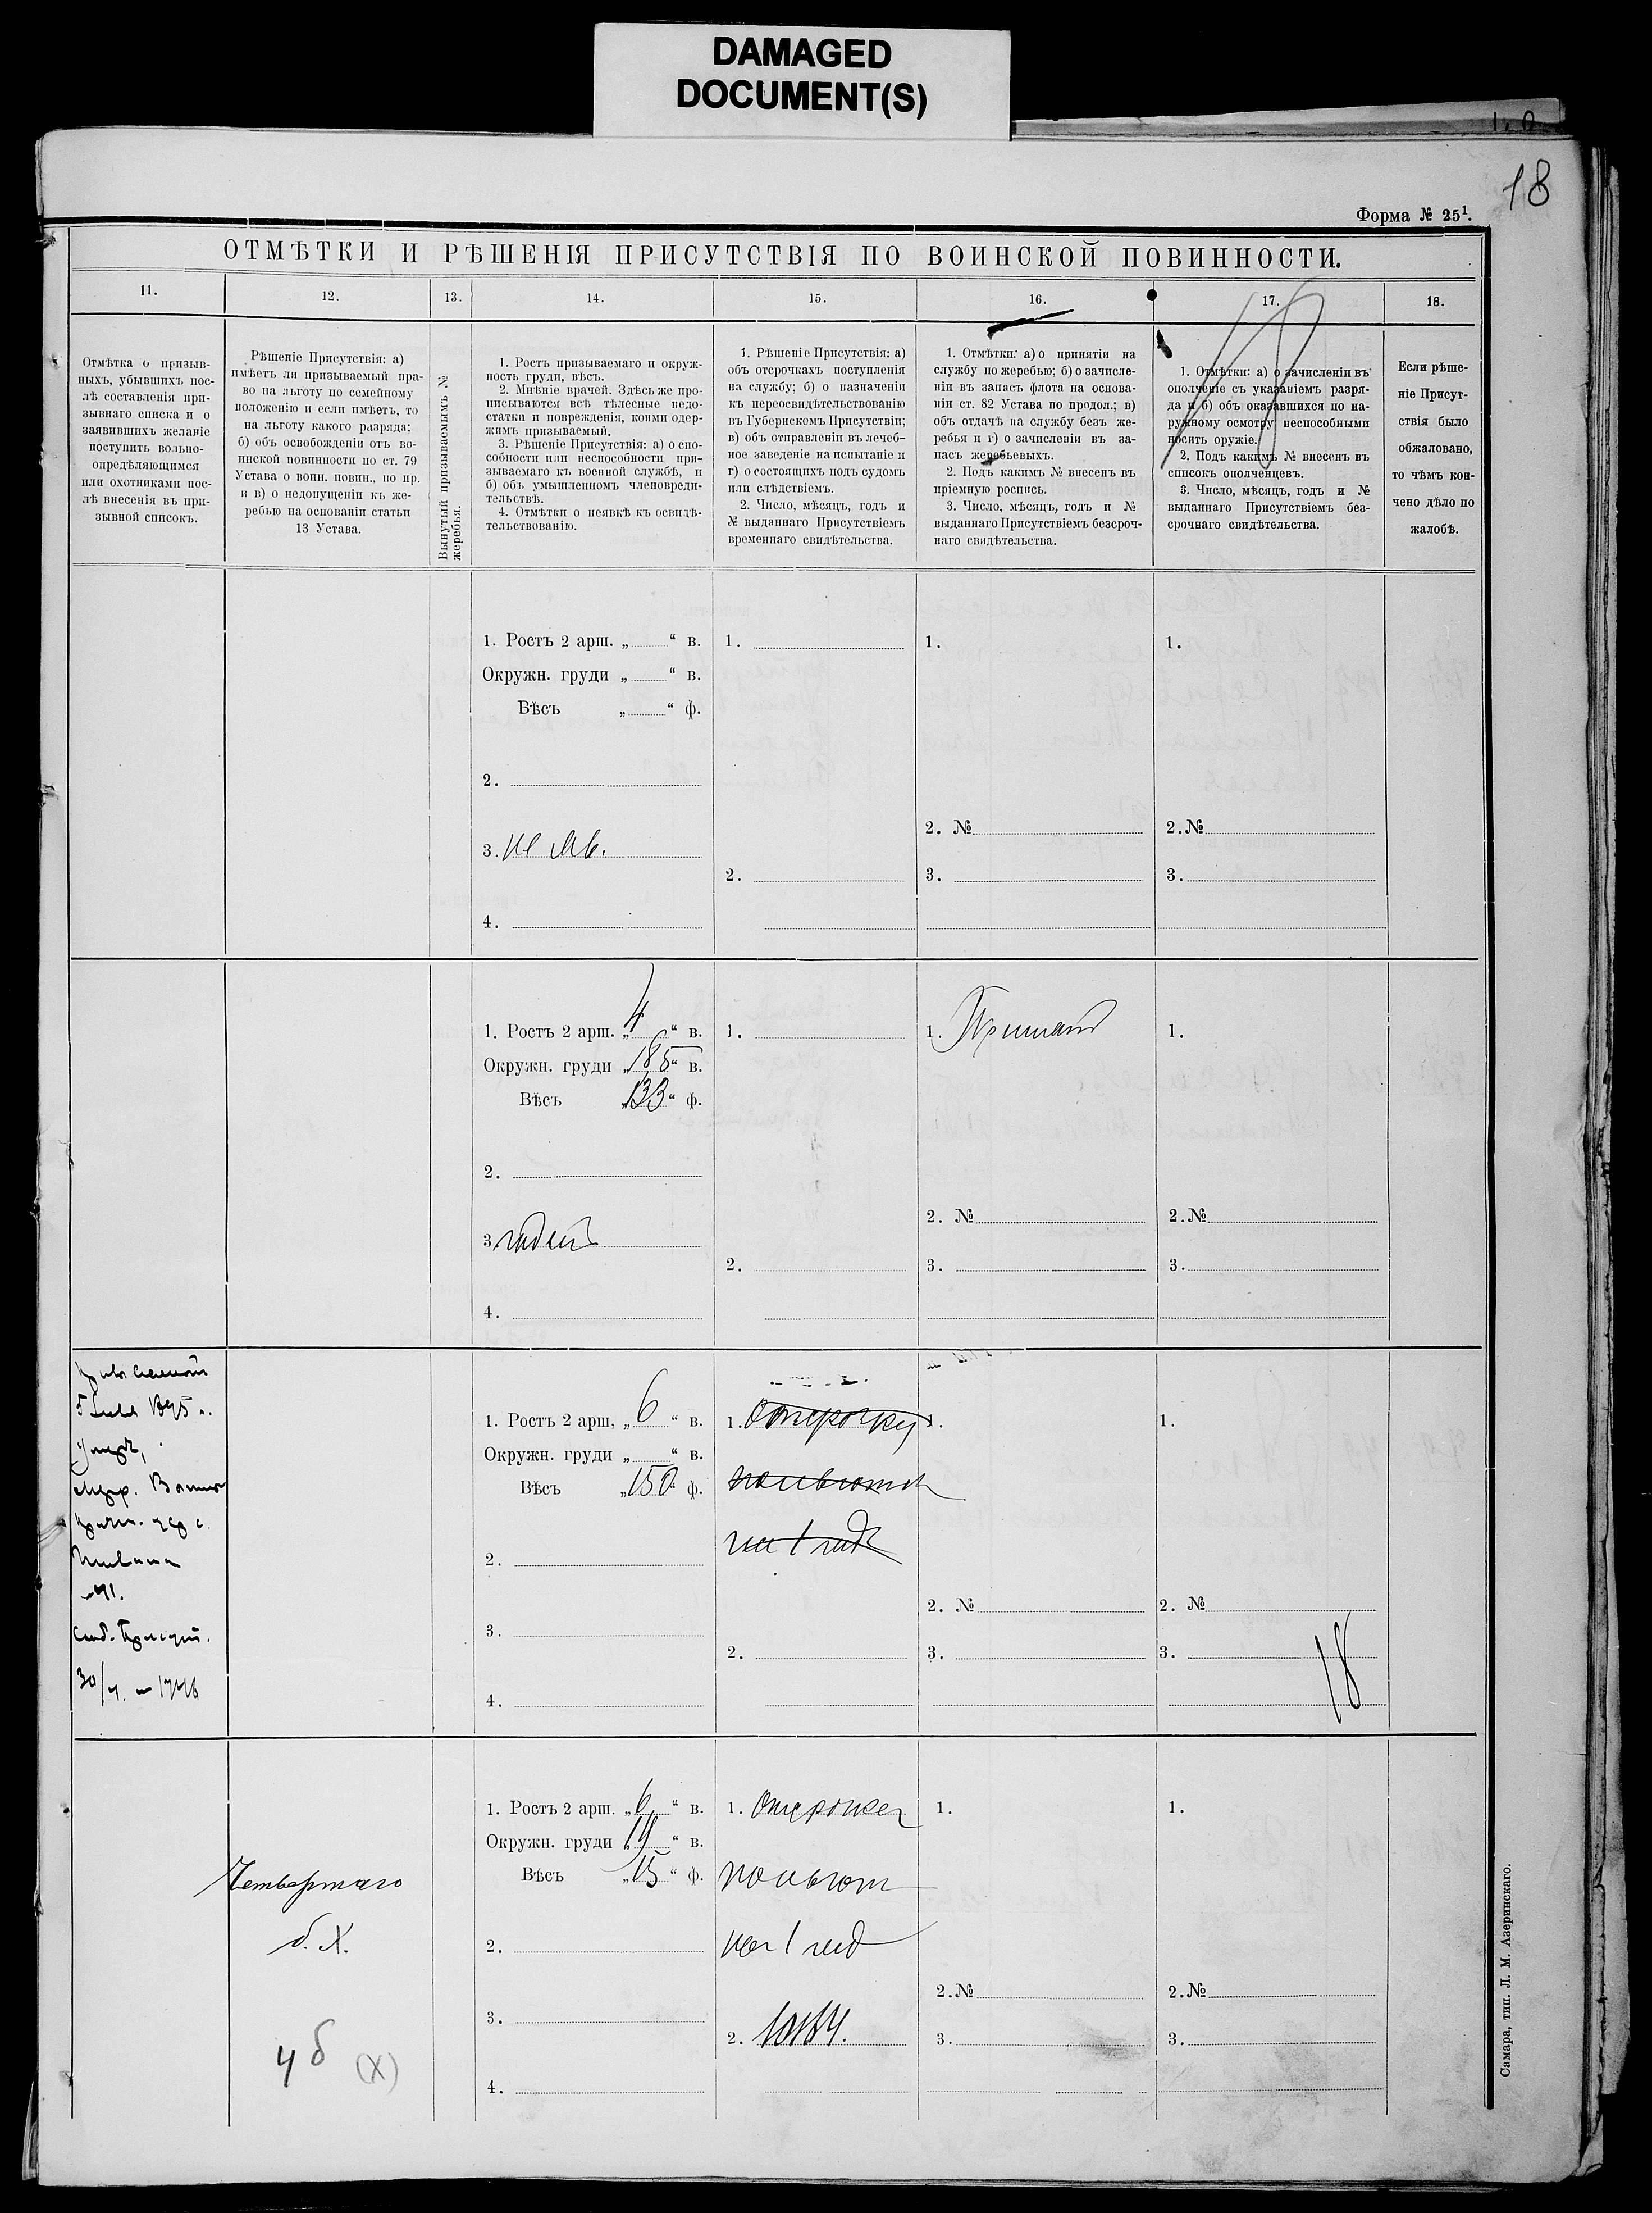 DAMAGED
DOCUMENT(S)
18
Форма № 25¹.
ОТМѢТКИ И РѢШЕНІЯ ПРИСУТСТВІЯ ПО ВОИНСКОЙ ПОВИННОСТИ.
11.
12.
13.
14.
15.
16.
17.
18.
Отмѣтка о призыв-
ныхъ, убывшихъ пос-
лѣ составленія при-
зывнаго списка и о
заявившихъ желаніе
поступить вольно-
опредѣляющимся
или охотниками пос-
лѣ внесенія въ при-
зывной списокъ.
Рѣшеніе Присутствія: а)
имѣетъ ли призываемый пра-
во на льготу по семейному
положенію и если имѣетъ, то
на льготу какого разряда;
б) объ освобожденіи отъ во-
инской повинности по ст. 79
Устава о воин. повин., по пр.
и в) о недопущеніи къ же-
ребью на основаніи статьи
13 Устава.
Вынутый призываемымъ №
жеребья.
1. Ростъ призываемаго и окруж-
ность груди, вѣсъ.
2. Мнѣніе врачей. Здѣсь же про-
писываются всѣ тѣлесные недо-
статки и поврежденія, коими одер-
жимъ призываемый.
3. Рѣшеніе Присутствія: а) о спо-
собности или неспособности при-
зываемаго къ военной службѣ, и
б) объ умышленномъ членовреди-
тельствѣ.
4. Отмѣтки о неявкѣ къ освидѣ-
тельствованію.
1. Рѣшеніе Присутствія: а)
объ отсрочкахъ поступленія
на службу; б) о назначеніи
къ переосвидѣтельствованію
въ Губернскомъ Присутствіи;
в) объ отправленіи въ лечеб-
ное заведеніе на испытаніе и
г) о состоящихъ подъ судомъ
или слѣдствіемъ.
2. Число, мѣсяцъ, годъ и
№ выданнаго Присутствіемъ
временнаго свидѣтельства.
1. Отмѣтки: а) о принятіи на
службу по жеребью; б) о зачисле-
ніи въ запасъ флота на основа-
ніи ст. 82 Устава по продол.; в)
объ отдачѣ на службу безъ же-
ребья и г) о зачисленіи въ за-
пасъ жеребьевыхъ.
2. Подъ какимъ № внесенъ въ
пріемную роспись.
3. Число, мѣсяцъ, годъ и №
выданнаго Присутствіемъ безсроч-
наго свидѣтельства.
18
1. Отмѣтки: а) о зачисленіи въ
ополченіе съ указаніемъ разря-
да и б) объ оказавшихся по на-
ружному осмотру неспособными
носить оружіе.
2. Подъ какимъ № внесенъ въ
списокъ ополченцевъ.
3. Число, мѣсяцъ, годъ и №
выданнаго Присутствіемъ без-
срочнаго свидѣтельства.
Если рѣше-
ніе Присут-
ствія было
обжаловано,
то чѣмъ кон-
чено дѣло по
жалобѣ.
1. Ростъ 2 арш. „ “ в.
Окружн. груди „ “ в.
Вѣсъ „ “ ф.
2.
3. не яв.
4.
1.
2.
1.
2. №
3.
1.
2. №
3.
1. Ростъ 2 арш. „ 4 “ в.
Окружн. груди „ 18,5 “ в.
Вѣсъ „ 133 “ ф.
2.
3. годенъ
4.
1.
2.
1. Принятъ
2. №
3.
1.
2. №
3.
умеръ,
30/
1. Ростъ 2 арш. „ 6 “ в.
Окружн. груди „ “ в.
Вѣсъ „ 150 “ ф.
2.
3.
4.
1. Отсрочку
на 1 годъ
2.
1.
2. №
3.
1.
2. №
3.
18
Четвертаго
б. X.
4 б (X)
1. Ростъ 2 арш. „ 6 “ в.
Окружн. груди „ 19 “ в.
Вѣсъ „ “ ф.
2.
3.
4.
1.
на 1 год
2. 10164.
1.
2. №
3.
1.
2. №
3.
Самара, тип. Л. М. Азеринскаго.